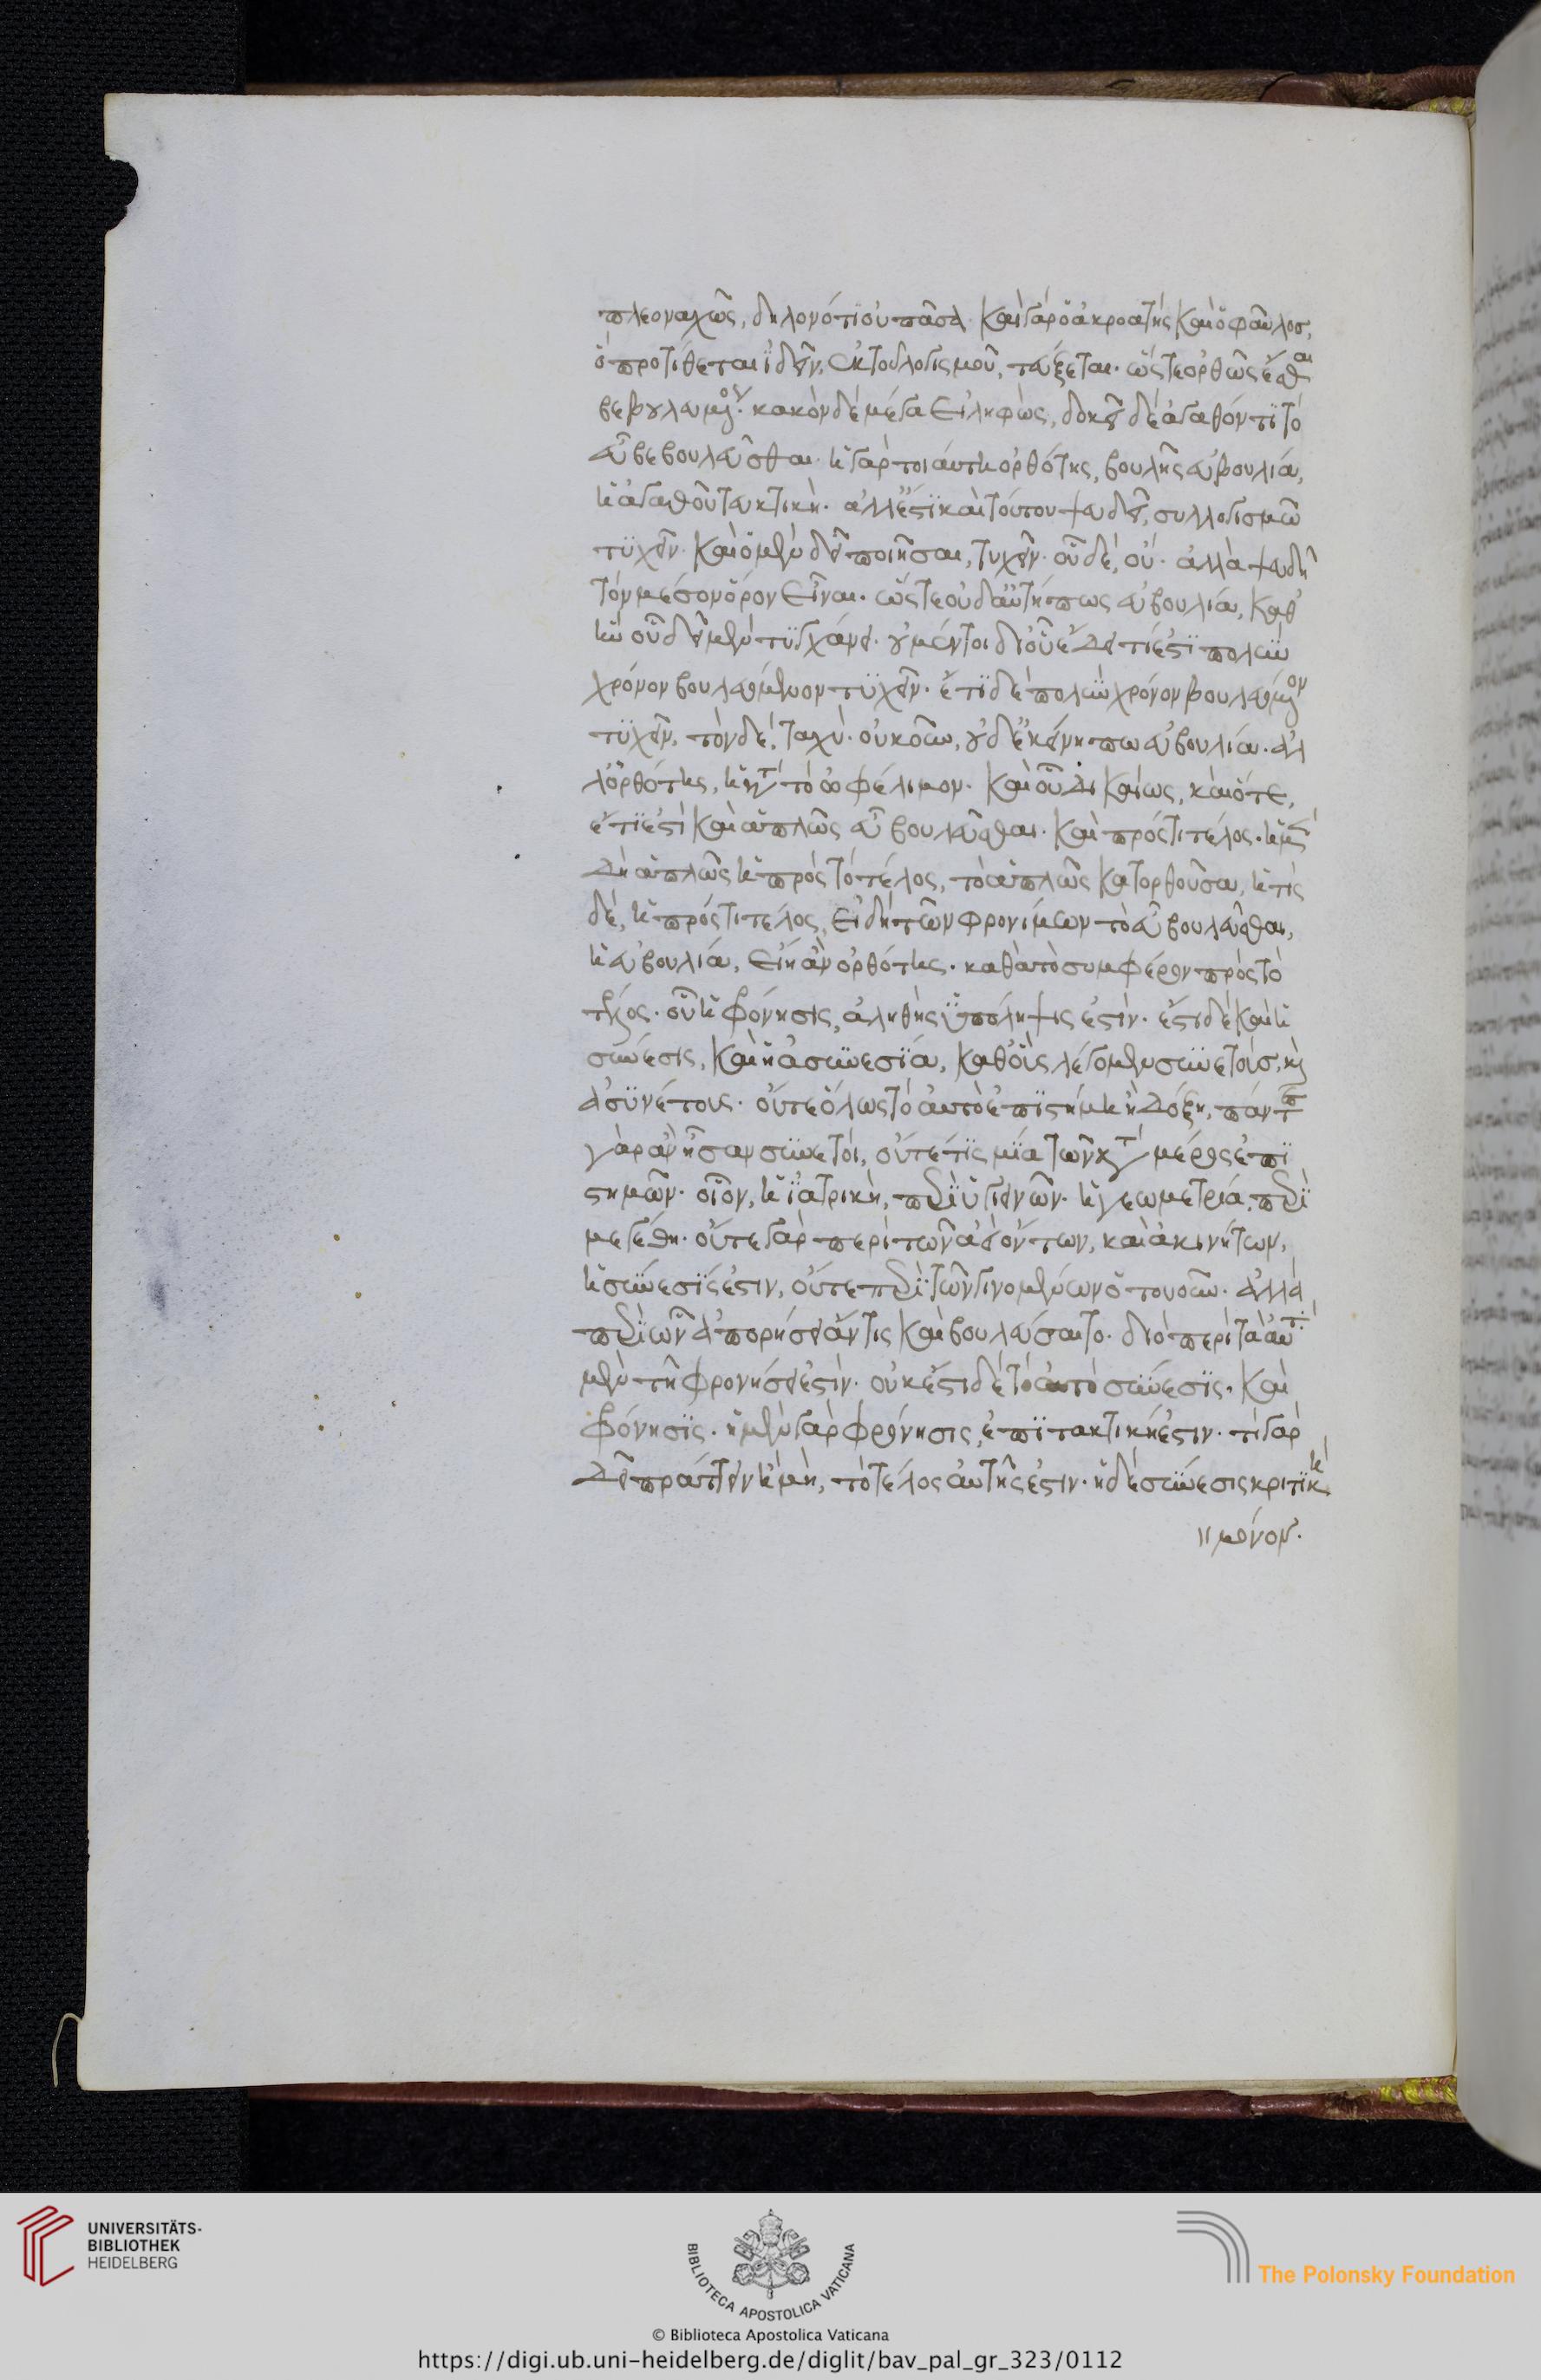 πλεοναχῶς, δηλονότι οὐ πᾶσα. καὶ γὰρ ὁ ἀκροατὴς καὶ ὁ φαῦλος,
ὃ προτίθεται ἰδεῖν, ἐκ τοῦ λογισμοῦ, τεύξεται. ὥστε ὀρθῶς ἔσται
βεβουλευμένος. κακὸν δὲ μέγα εἰληφώς, δοκεῖ δὲ ἀγαθόν τι τὸ
εὖ βεβουλεῦσθαι. ἡ γὰρ τοιαύτη ὀρθότης, βουλῆς εὐβουλία,
ἡ ἀγαθοῦ τευκτική. ἀλλ' ἔστι καὶ τούτου ψευδεῖ, συλλογισμῶ
τυχεῖν. καὶ ὃ μὲν δεῖ ποιῆσαι, τυχεῖν. οὗ δέ, οὔ. ἀλλὰ ψευδῆ
τὸν μέσον ὅρον εἶναι. ὥστε οὐδ' αὕτη πως εὐβουλία, καθ'
ἣν οὗ δεῖ μὲν τυγχάνει. οὐ μέντοι δι' οὗ ἔδει τι ἐστὶ πολὺν
χρόνον βουλευόμενον τυχεῖν. ἔτι δὲ πολὺν χρόνον βουλευόμενον
τυχεῖν, τὸν δέ, ταχύ. οὐκοῦν, οὐδ' ἐκείνη πω εὐβουλία. ἀλ
λ' ὀρθότης, ἡ κατὰ τὸ ὠφέλιμον. καὶ οὗ δικαίως, καὶ ὅτε,
ἔτι ἐστὶ καὶ ἁπλῶς εὖ βουλεῦσθαι. καὶ πρός τι τέλος. ἡ μὲν
δὴ ἁπλῶς ἡ πρὸς τὸ τέλος, τὸ ἁπλῶς κατορθοῦσα, ἡ τὶς
δέ, ἡ πρός τι τέλος, εἰ δὴ τῶν φρονίμων τὸ εὖ βουλεῦσθαι,
ἡ εὐβουλία, εἴη ἂν ὀρθότης. καθὰ τὸ συμφέρον πρὸς τὸ
τέλος. οὗ ἡ φρόνησις, ἀληθὴς ὑπόληψις ἐστίν. ἔστι δὲ καὶ ἡ
σύνεσις, καὶ ἡ ἀσυνεσία, καθ' ἃς λέγομεν συνετούς, καὶ
ἀσυνέτους. οὔτε ὅλως τὸ αὐτὸ ἐπιστήμη ἢ δόξη, πάντες
γὰρ ἂν ἦσαν συνετοί, οὔτε τὶς μία τῶν κατὰ μέρος ἐπι
στημῶν. οἷον, ἡ ἰατρική, περὶ ὑγιεινῶν. ἡ γεωμετρία, περὶ
μεγέθη. οὔτε γὰρ περὶ τῶν ἀεὶ ὄντων, καὶ ἀκινήτων,
ἡ σύνεσίς ἐστιν, οὔτε περὶ τῶν γινομένων ὁτουοῦν. ἀλλὰ
περὶ ὧν ἀπορήσειεν ἄν τις καὶ βουλεύσαιτο. διὸ περὶ τὰ αὐτὰ
μὲν τῆ φρονήσει ἐστίν. οὐκ ἔστι δὲ τὸ αὐτὸ σύνεσις. καὶ
φρόνησις. ἡ μὲν γὰρ φρόνησις, ἐπιτακτική ἐστιν. τί γὰρ
δεῖ πράττειν ἢ μή, τὸ τέλος αὐτῆς ἐστιν. ἡ δὲ σύνεσις κριτικὴ
μόνον.
UNIVERSITÄTS-
BIBLIOTHEK
HEIDELBERG
BIBLIOTECA APOSTOLICA VATICANA
The Polonsky Foundation
© Biblioteca Apostolica Vaticana
https://digi.ub.uni-heidelberg.de/diglit/bav_pal_gr_323/0112